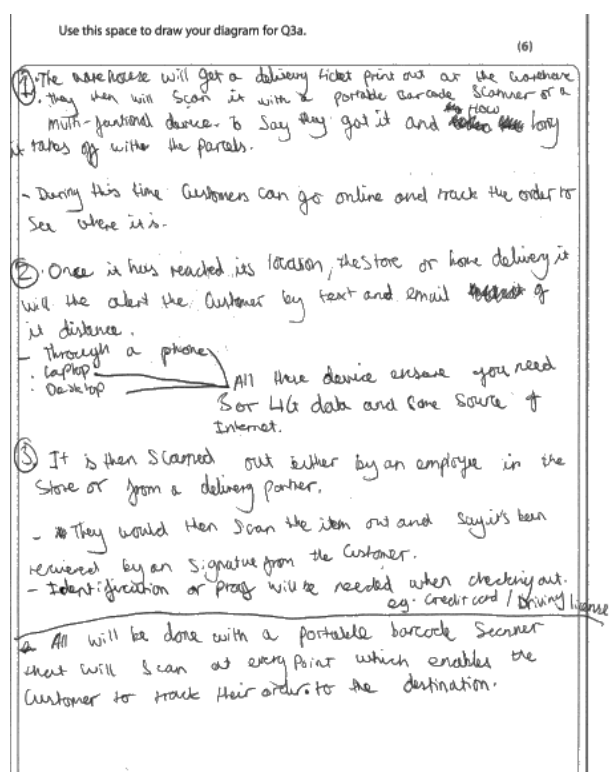 Use this space to draw your diagram for Q3a.
(6)
① . The warehouse will get a delivery ticket print out at the warehouse
. they then will Scan it with a portable Barcode Scanner or a
multi-funtional device. to Say they got it and How long
it takes off with the parcels.
- During this time Customers can go online and track the order to
See where it is.
② . Once it has reached its location, the Store or home delivery it
will the alert the Customer by text and email of
it distance.
- Through a phone
. Laptop
. Desktop
All these device ensure you need
3 or 4G data and some source of
Internet.
③ It is then Scanned out either by an employe in the
Store or from a delivery partner.
- They would then Scan the item out and say it's been
recieved by an Signatue from the Customer.
- Identification or proof will be needed when checking out.
eg. Credit card / Driving license
All will be done with a portable barcode Scanner
that will Scan at every point which enables the
Customer to track their order to the destination.